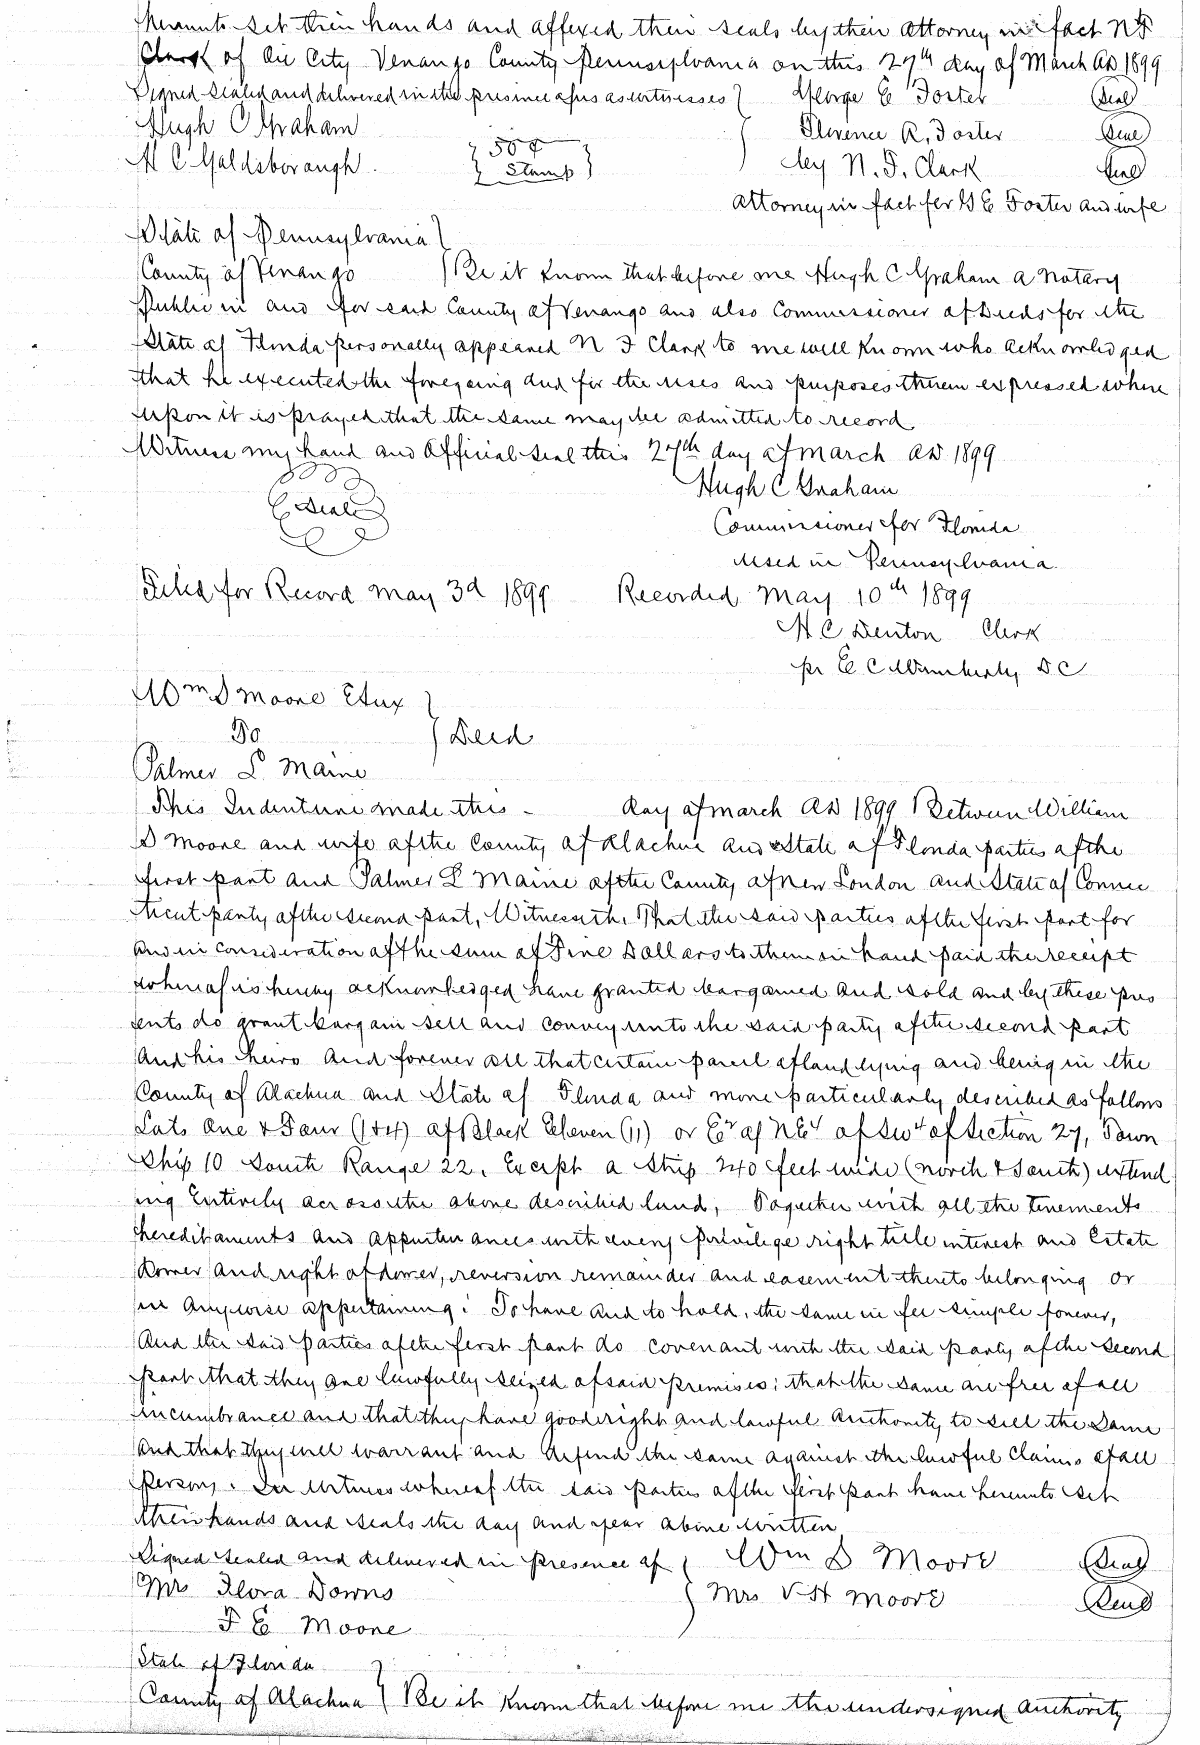 hereunto set their hands and affixed their seals by their attorney in fact N F
Clark of Oil City Venango County Pennsylvania on this 27th day of March AD 1899
Signed sealed and delivered in the presence of us as witnesses } George E Foster (Seal)
Hugh C Graham } Florence R. Foster (Seal)
H C Galdsborough. { 50¢ Stamp } by N. F. Clark (Seal)
attorney in fact for G E Foster and wife
State of Pennsylvania }
County of Venango } Be it known that before me Hugh C Graham a Notary
Public in and for said County of Venango and also Commissioner of Deeds for the
State of Florida personally appeared N F Clark to me well known who acknowledged
that he executed the foregoing deed for the uses and purposes therein expressed where
upon it is prayed that the same may be admitted to record
Witness my hand and Official seal this 27th day of March AD 1899
(Seal) Hugh C Graham
Commissioner for Florida
used in Pennsylvania
Filed for Record May 3d 1899 Recorded May 10th 1899
H C Denton Clerk
pr E C Wimberly D C
Wm D Moore Etux }
To } Deed
Palmer L Maine
This Indenture made this - day of March AD 1899 Between William
D Moore and wife of the County of Alachua and State of Florida parties of the
first part and Palmer L Maine of the County of New London and State of Connec
ticut party of the second part, Witnesseth, That the said parties of the first part for
and in consideration of the sum of Five Dollars to them in hand paid the receipt
whereof is hereby acknowledged have granted bargained and sold and by these pres
ents do grant bargain sell and convey unto the said party of the second part
and his heirs and forever all that certain parcel of land lying and being in the
County of Alachua and State of Florida and more particularly described as follows
Lots One & Four (1&4) of Block Eleven (11) or E½ of NE¼ of SW¼ of Section 27, Town
ship 10 South Range 22. Except a strip 240 feet wide (north & South) extend
ing Entirely across the above described land, Together with all the tenements
hereditaments and appurtenances with every privilege right title interest and Estate
Dower and right of dower, reversion remainder and easement thereto belonging or
in anywise appertaining: To have and to hold, the same in fee simple forever,
And the said parties of the first part do covenant with the said party of the second
part that they are lawfully seized of said premises; that the same are free of all
incumbrance and that they have good right and lawful authority to sell the same
and that they will warrant and defend the same against the lawful claims of all
Persons. In witness whereof the said parties of the first part have hereunto set
their hands and seals the day and year above written
Signed sealed and delivered in presence of { Wm D Moore (Seal)
Mrs Flora Downs { Mrs V H Moore (Seal)
F E Moore
State of Florida }
County of Alachua } Be it known that before me the undersigned authority